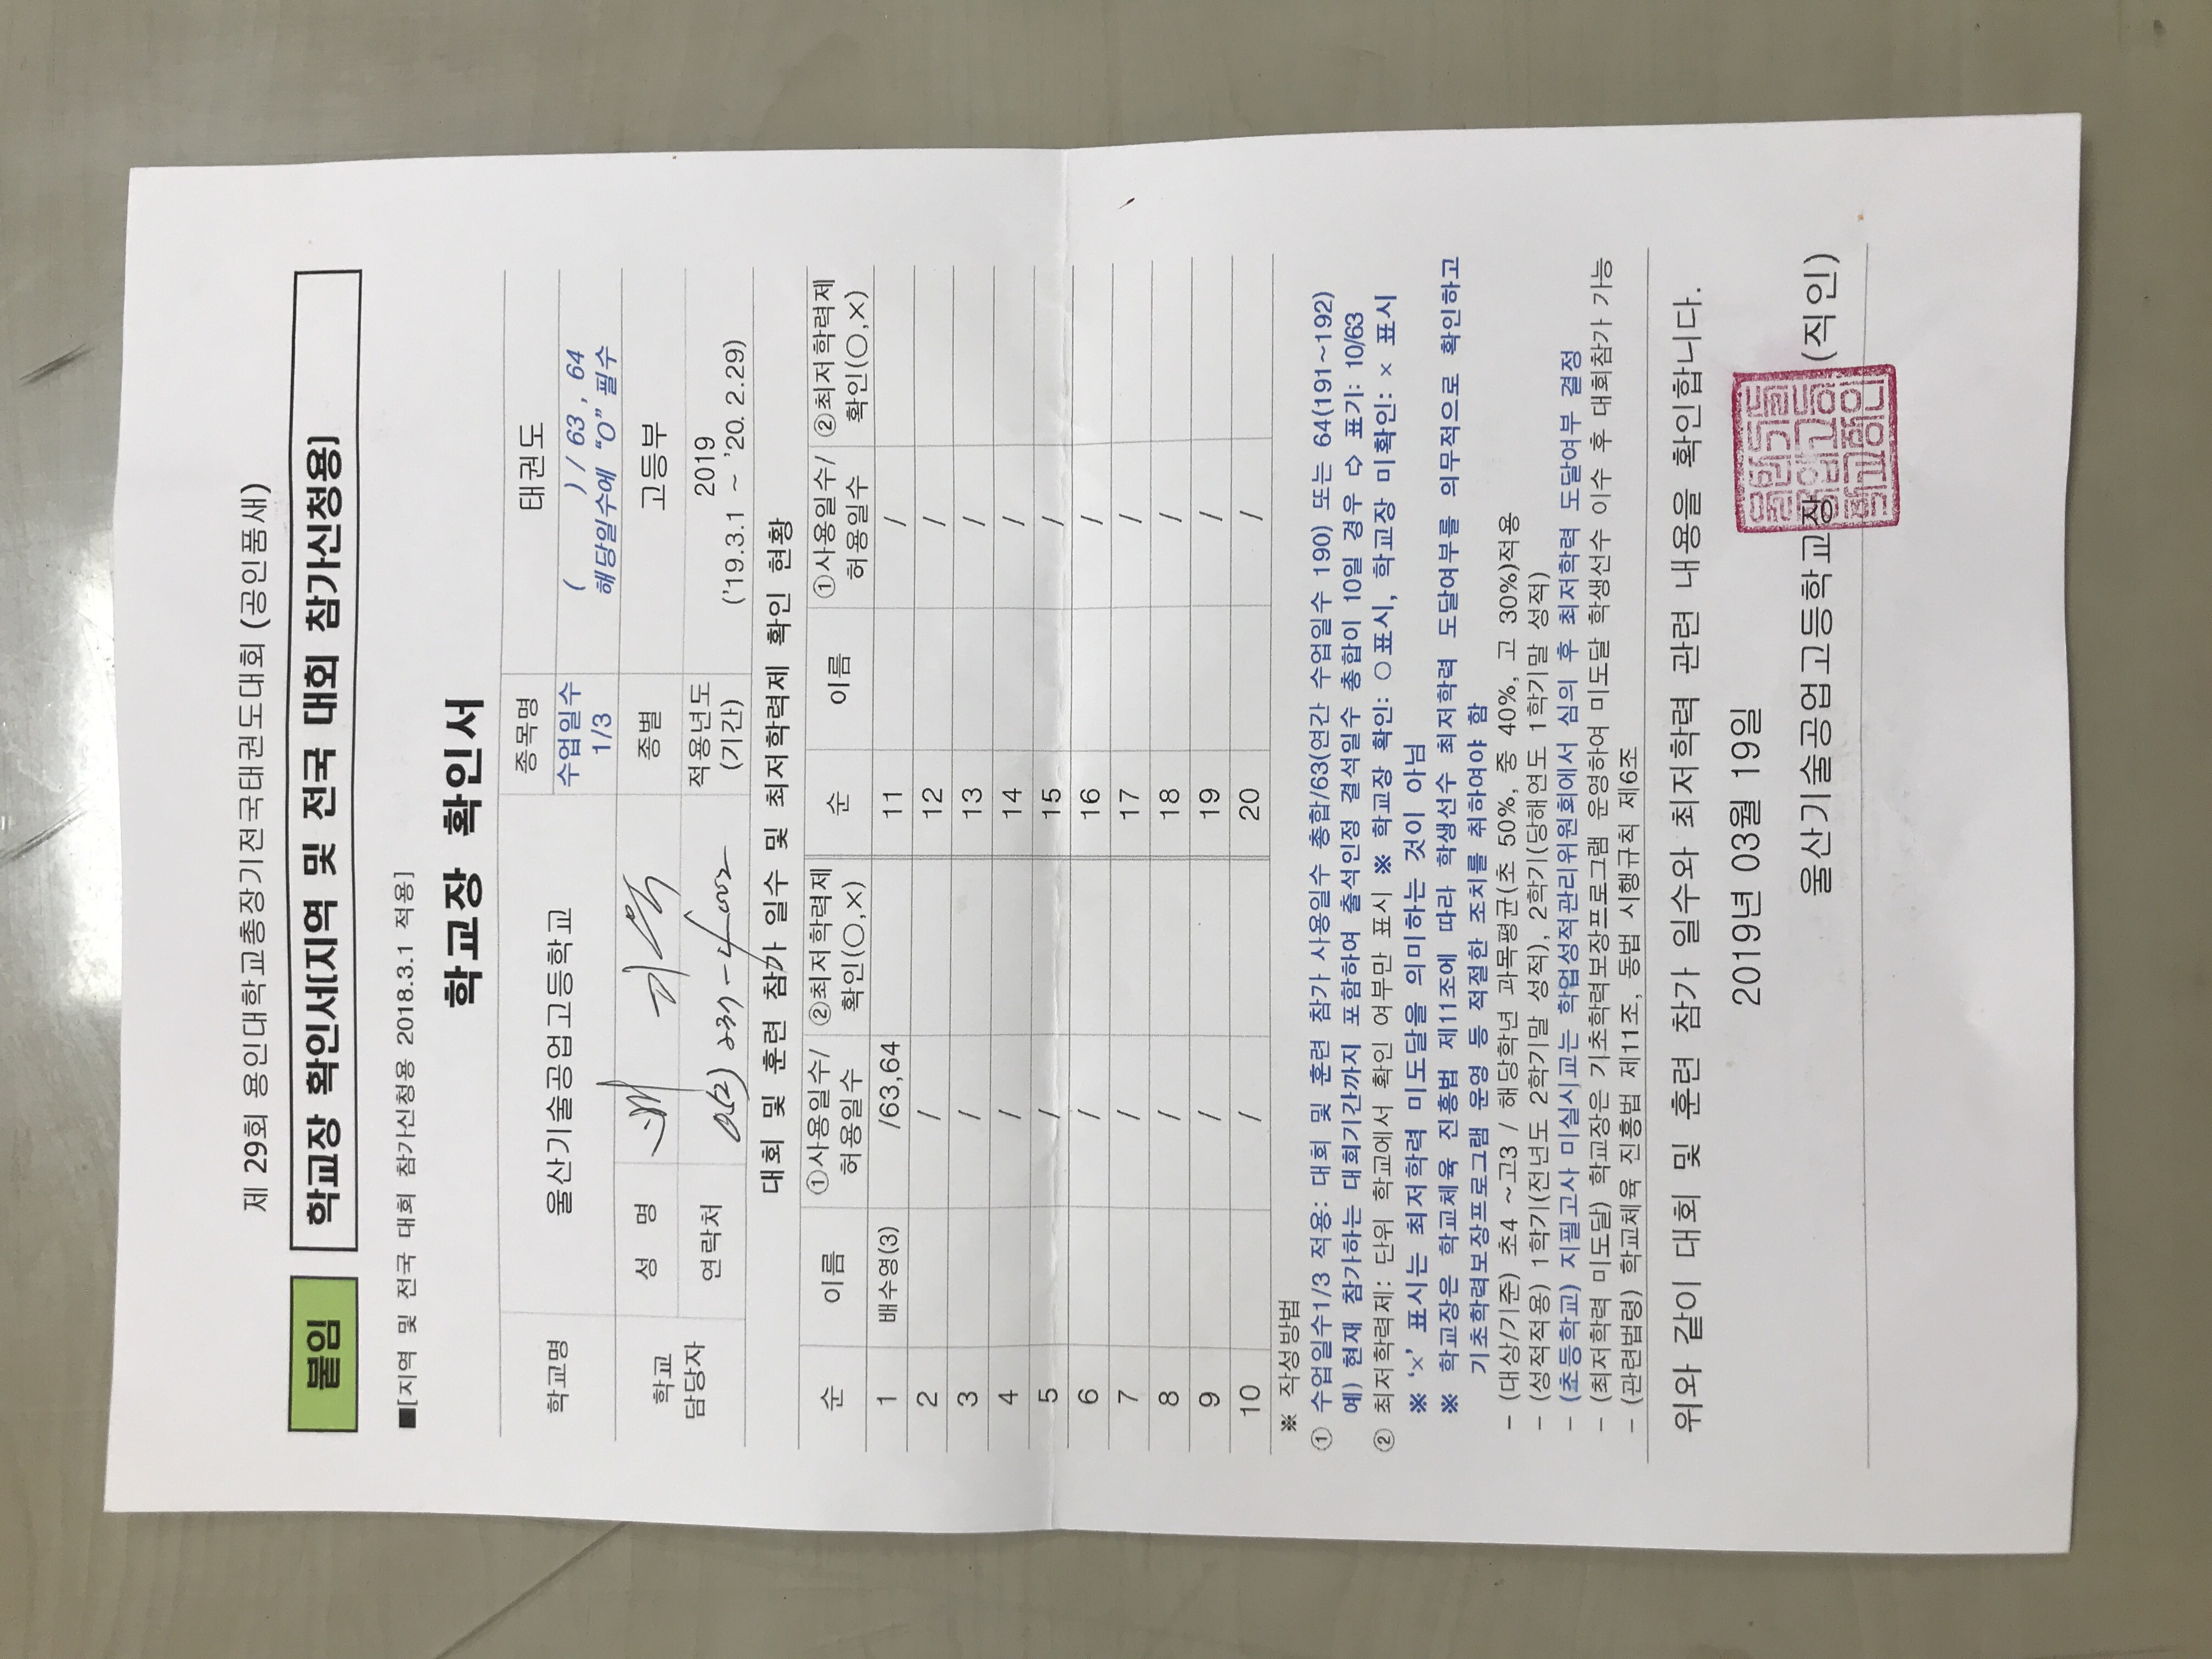 제 29회 용인대학교총장기전국태권도대회 (공인품새)
붙임 학교장 확인서[지역 및 전국 대회 참가신청용]
■[지역 및 전국 대회 참가신청용 2018.3.1 적용]
학교장 확인서
학교명 울산기술공업고등학교 종목명 태권도
수업일수 1/3 ( ) / 63 , 64
해당일수에 “O” 필수
학교 담당자 성 명 종별 고등부
연락처 적용년도 (기간) 2019
('19.3.1 ~ '20. 2.29)
대회 및 훈련 참가 일수 및 최저학력제 확인 현황
순 이름 ①사용일수/허용일수 ②최저학력제 확인(○,×) 순 이름 ①사용일수/허용일수 ②최저학력제 확인(○,×)
1 배수영(3) /63,64 11 /
2 / 12 /
3 / 13 /
4 / 14 /
5 / 15 /
6 / 16 /
7 / 17 /
8 / 18 /
9 / 19 /
10 / 20 /
※ 작성방법
① 수업일수1/3 적용: 대회 및 훈련 참가 사용일수 총합/63(연간 수업일수 190) 또는 64(191~192)
예) 현재 참가하는 대회기간까지 포함하여 출석인정 결석일수 총합이 10일 경우 ⇨ 표기: 10/63
② 최저학력제: 단위 학교에서 확인 여부만 표시 ※ 학교장 확인: ○표시, 학교장 미확인: × 표시
※ ‘×’ 표시는 최저학력 미도달을 의미하는 것이 아님
※ 학교장은 학교체육 진흥법 제11조에 따라 학생선수 최저학력 도달여부를 의무적으로 확인하고
기초학력보장프로그램 운영 등 적절한 조치를 취하여야 함
- (대상/기준) 초4 ~고3 / 해당학년 과목평균(초 50%, 중 40%, 고 30%)적용
- (성적적용) 1학기(전년도 2학기말 성적), 2학기(당해연도 1학기말 성적)
- (초등학교) 지필고사 미실시교는 학업성적관리위원회에서 심의 후 최저학력 도달여부 결정
- (최저학력 미도달) 학교장은 기초학력보장프로그램 운영하여 미도달 학생선수 이수 후 대회참가 가능
- (관련법령) 학교체육 진흥법 제11조, 동법 시행규칙 제6조
위와 같이 대회 및 훈련 참가 일수와 최저학력 관련 내용을 확인합니다.
2019년 03월 19일
울산기술공업고등학교장 (직인)